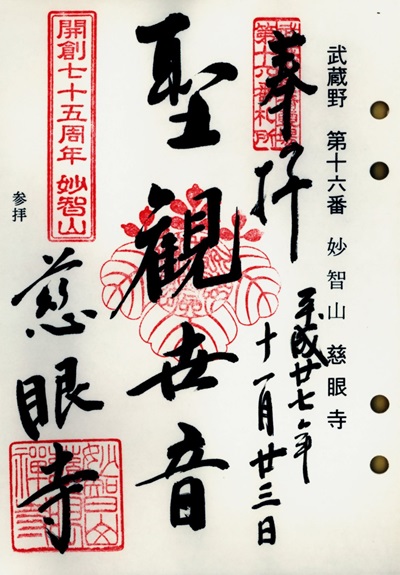 武蔵野 第十六番 妙智山 慈眼寺
奉拝
平成廿七年
十一月廿三日
聖観世音
開創七十五周年 妙智山
参拝
慈眼寺